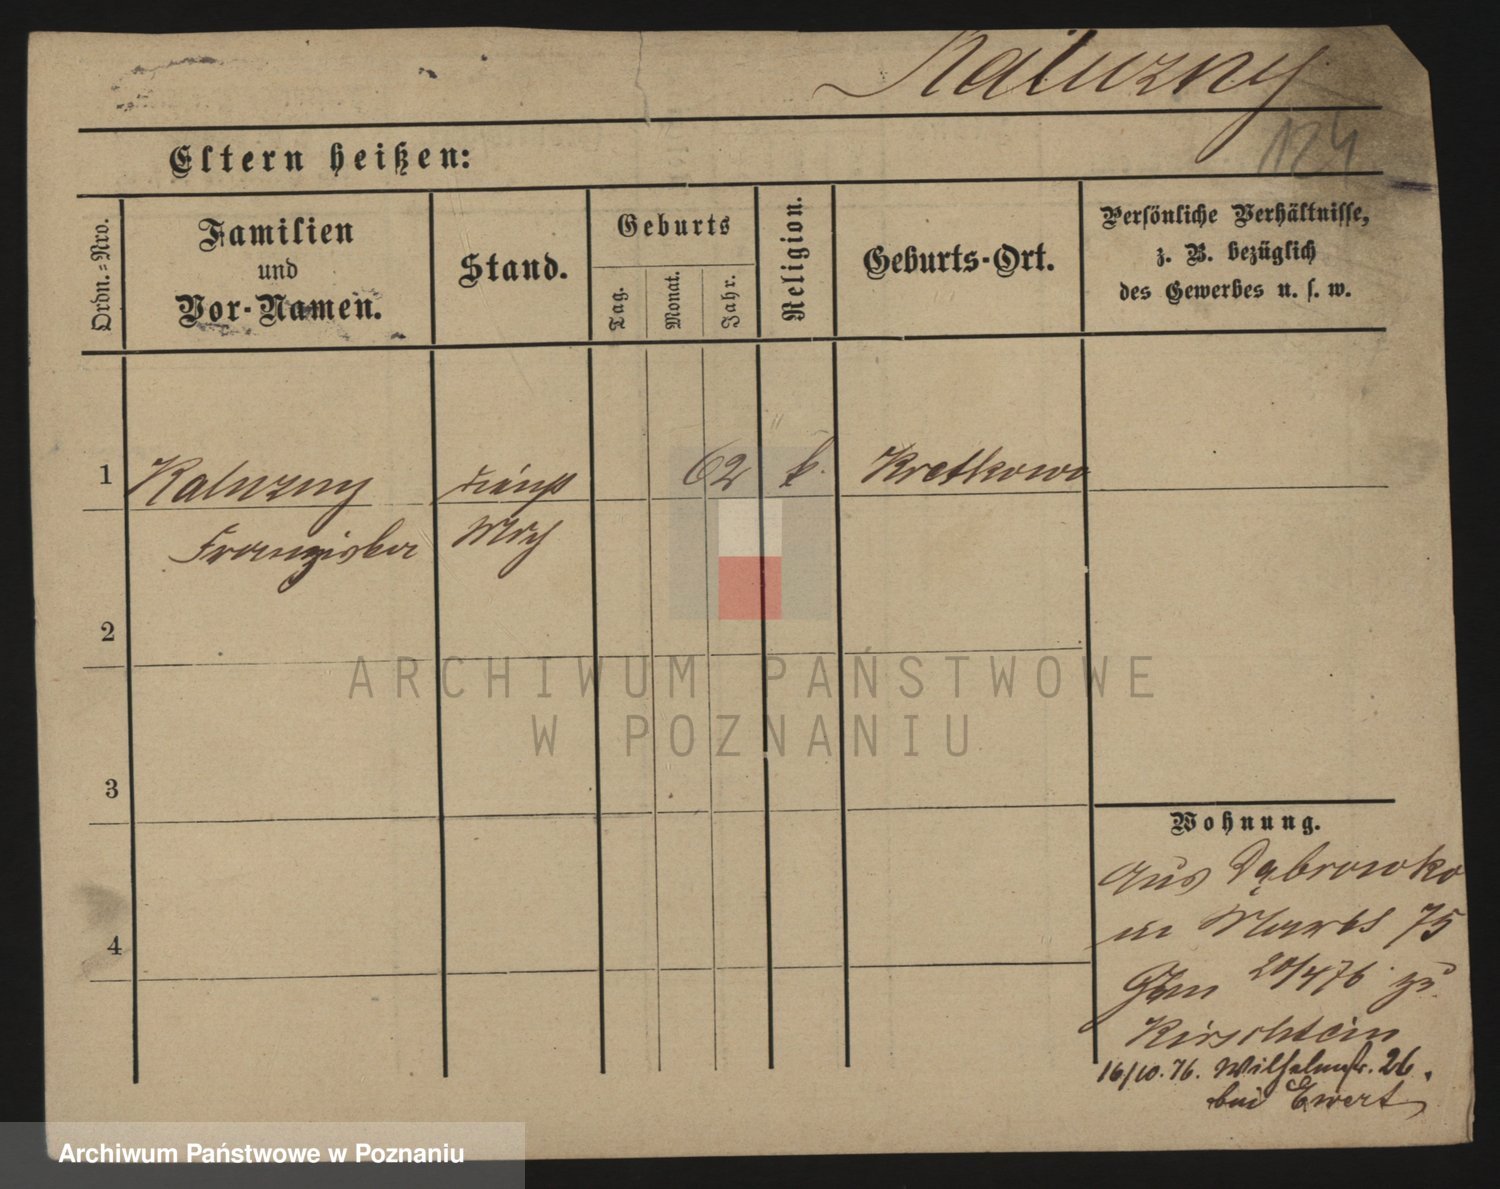 Kaluzny
124
Eltern heißen:
Ordn.-Nro.
Familien
und
Vor-Namen.
Stand.
Geburts
Tag.
Monat.
Jahr.
Religion.
Geburts-Ort.
Persönliche Verhältnisse,
z. B. bezüglich
des Gewerbes u. s. w.
1
Kaluzny
62
k.
Kretkowo
Franziska
2
3
4
Wohnung.
aus Dąbrowka
75
20/4 76 zu
Kirschstein
16/10. 76. Wilhelmstr. 26.
bei Ewert
ARCHIWUM PAŃSTWOWE
W POZNANIU
Archiwum Państwowe w Poznaniu